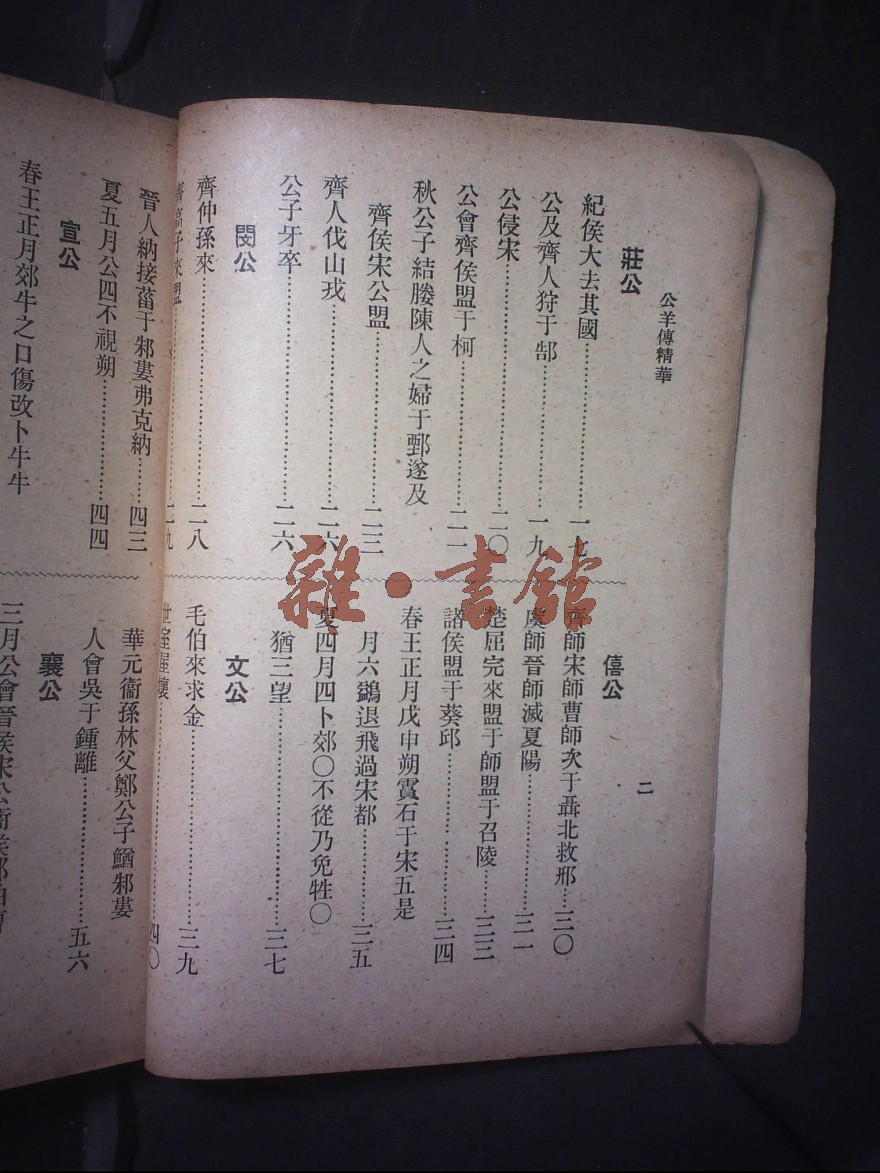 公羊傳精華
二
莊公
紀侯大去其國……………一七
公及齊人狩于郜……………一九
公侵宋……………二〇
公會齊侯盟于柯……………二一
秋公子結媵陳人之婦于鄄遂及
齊侯宋公盟……………二三
齊人伐山戎……………二六
公子牙卒……………二六
閔公
齊仲孫來……………二八
齊高子來盟……………二九
僖公
齊師宋師曹師次于聶北救邢……三〇
虞師晉師滅夏陽……………三一
楚屈完來盟于師盟于召陵……三三
諸侯盟于葵邱……………三四
春王正月戊申朔霣石于宋五是
月六鷁退飛過宋都……………三五
夏四月四卜郊〇不從乃免牲〇
猶三望……………三七
文公
毛伯來求金……………三九
世室屋壞……………四〇
晉人納接菑于邾婁弗克納……四三
夏五月公四不視朔……………四四
宣公
春王正月郊牛之口傷改卜牛牛
華元衞孫林父鄭公子鰌邾婁
人會吳于鍾離……………五六
襄公
三月公會晉侯宋公衞侯
雜·書館